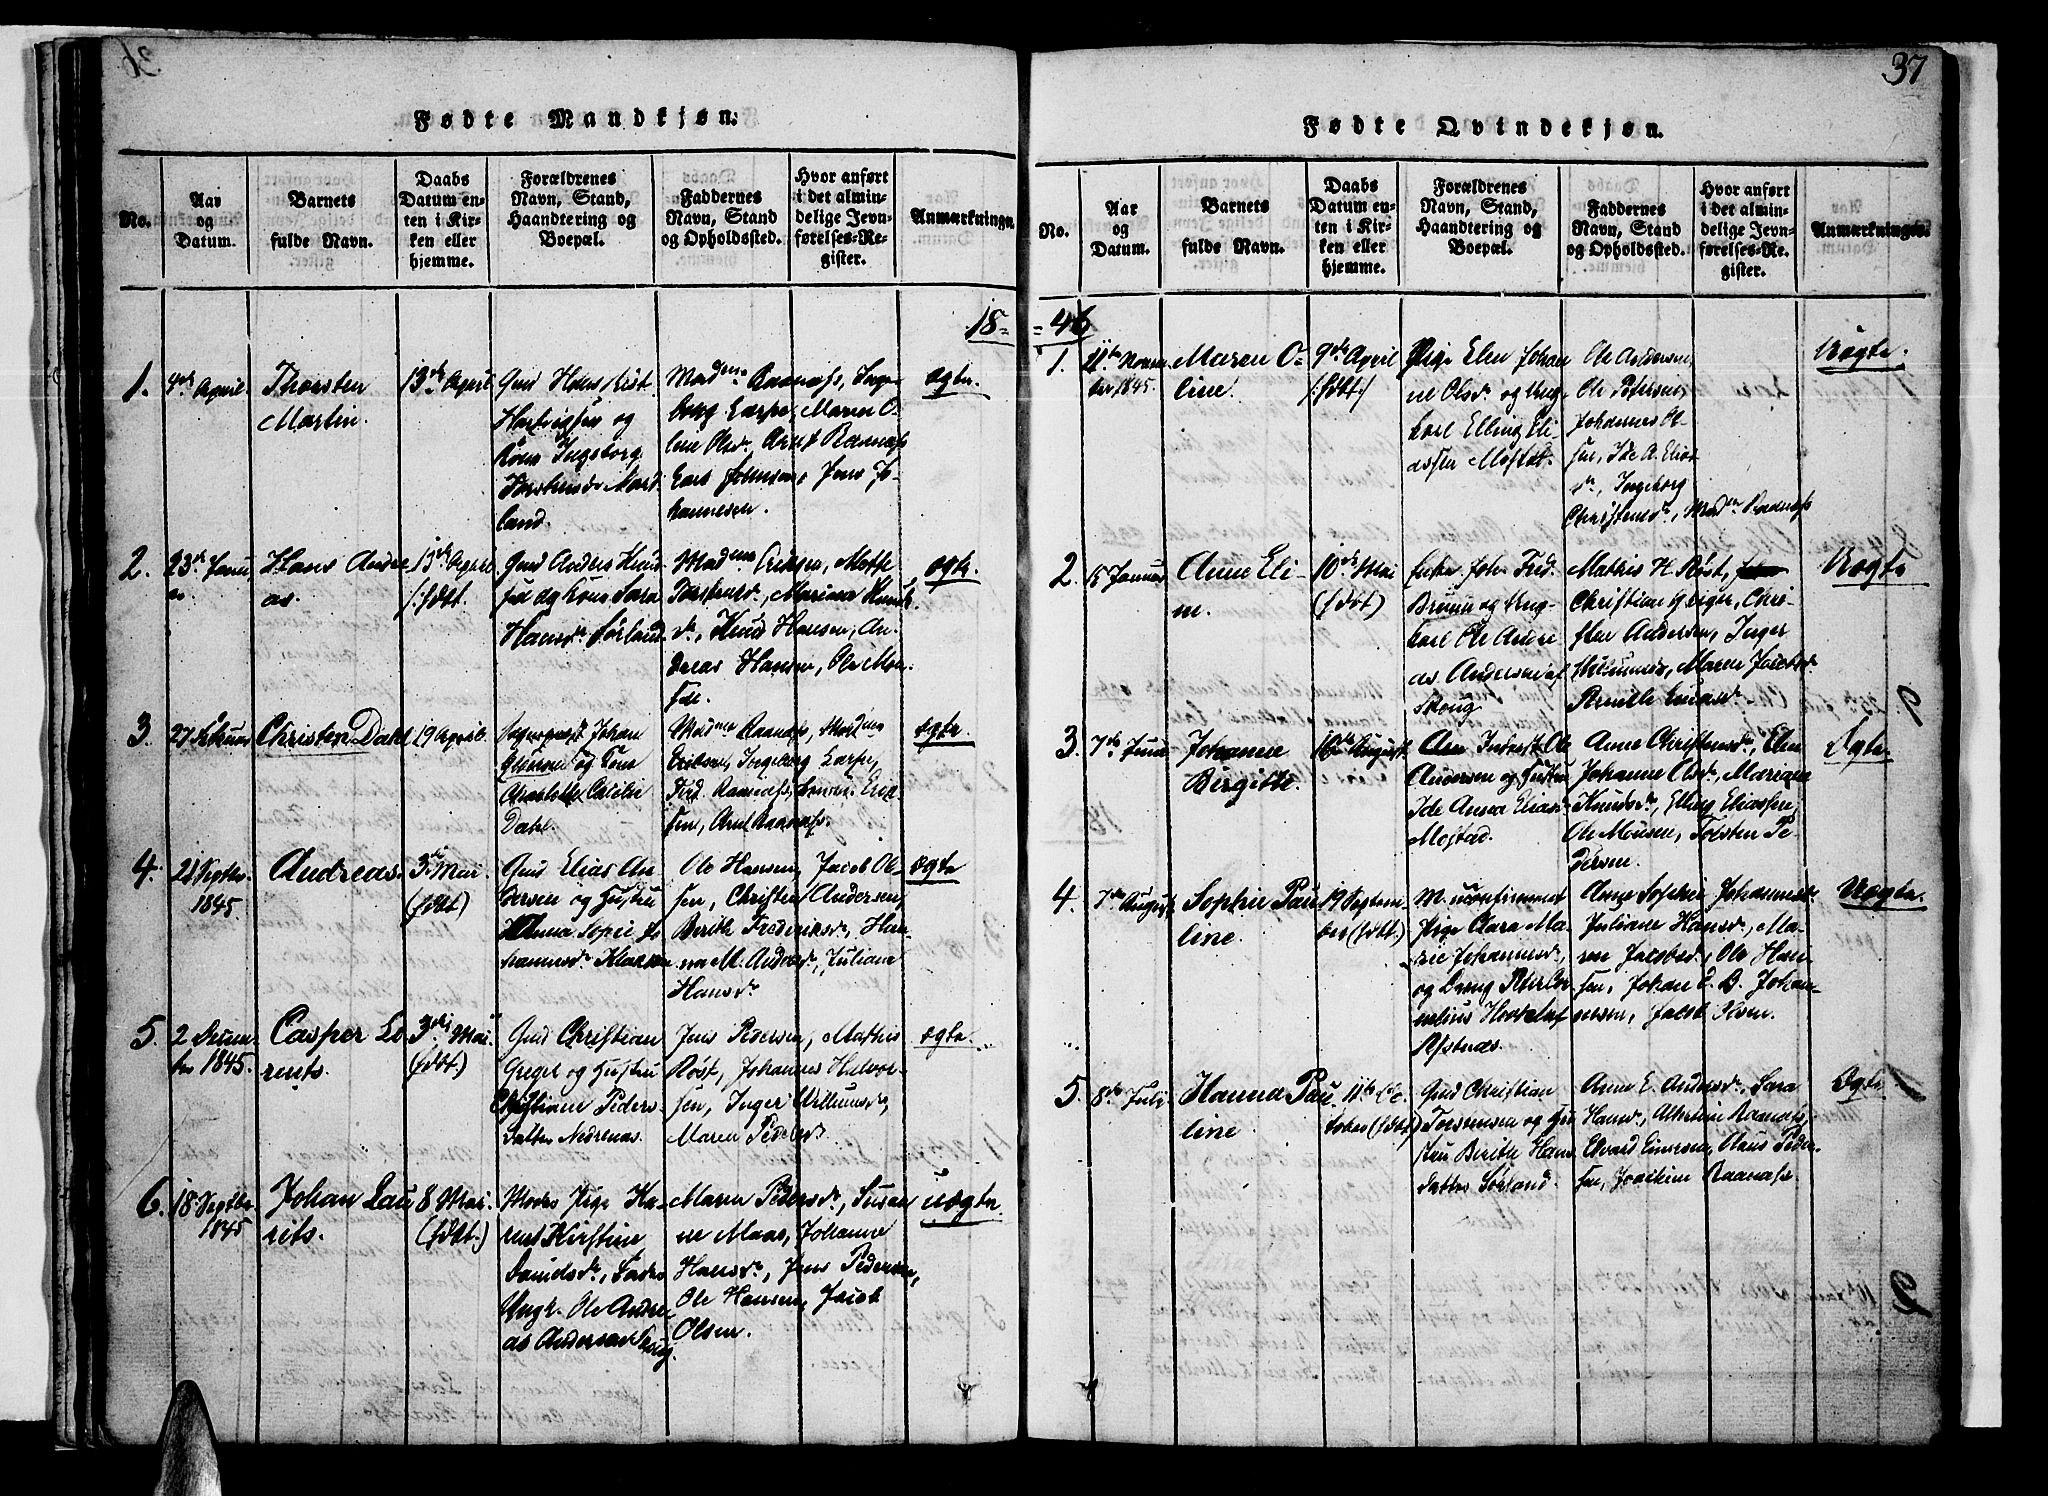 Fødte Mandkjøn.
No.
Aar
og
Datum.
Barnets
fulde Navn.
Daabs
Datum en-
ten i Kir-
ken eller
hjemme.
Forældrenes
Navn, Stand,
Haandtering og
Boepæl.
Faddernes
Navn, Stand
og Opholdssted.
Hvor anført
i det almin-
delige Jevn-
førelses-Re-
gister.
Anmærkninger.
18=
1.
4de April
Thorsten
Martin.
13de April
Gmd Hans Kist.
Hartvigsen og
Kone Ingeborg
Torstensdr Mord
land.
Madme Raanass, Inge
borg Carpe, Maren O
line Olsdr, Arnt Raanass
Lars Johnsen, Jens Jo-
hannesen.
ægte.
2.
23de Janu
ar
Hans Andre
as.
13de April
(hdbt.
Gmd Anders Knud
sen og Kone Sara
Hansdr Sørland
Madme Eriksen, Mette
Torstensdr, Marina Knud
dr, Knud Hansen, An-
dreas Hansen, Ole Mon-
sen.
ægte.
3.
27 Februar
Christen Dahl
19 April.
Johan
og Kone
Charlotte Cecilie
Dahl.
Madme Raanass, Madme
Eriksen, Ingeborg Carpe,
Ferd. Raanass, Erik-
sen, Arnt Raanass.
ægte.
4.
21 Septbr.
1845.
Andreas.
3de Mai.
(hdbt)
Gmd Elias An
dersen og Hustru
Anna Sopie Jo
hannesdr
Ole Hansen, Jacob Ol-
sen, Christen Andersen,
Berith Frederiksdr, Han-
na M. Andersdr, Juliane
Hansdr
ægte
5.
2 Decem-
ber 1845.
Casper Lo
rents.
3die Mai.
(hdbt)
Gmd Christian
Greger og Hustru
Christiane Peders
datter Nedrenæs.
Jens Pedersen, Mathis
Røst, Johannes Halvor-
sen, Inger Willumsdr,
Maren Pedersdr
ægte
6.
18 Septbr.
1845
Johan Lau
rits.
8 Mai.
(hdbt.)
Moder Pige Ka-
ren Kirstine
Davidsdr, Fader
Ungk. Ole Andre-
as Andersen Skoug.
Maren Pedersdr, Susan
ne Maas, Johanne
Hansdr, Jens Pedersen,
Ole Hansen, Jacob
Olsen.
uægte.
37
Fødte Qvindekjøn.
No.
Aar
og
Datum.
Barnets
fulde Navn.
Daabs
Datum en-
ten i Kir-
ken eller
hjemme.
Forældrenes
Navn, Stand,
Haandtering og
Boepæl.
Faddernes
Navn, Stand
og Opholdssted.
Hvor anført
i det almin-
delige Jevn-
førelses-Re-
gister.
Anmærkninger.
=46
1.
11te Novem
ber, 1845.
Maren O-
line.
9de April
(hdbt.)
Pige Elen Johan
ne Olsdr og Ung-
karl Elling Eli-
assen Mostad.
Ole Andersen,
Ole Pedersen,
Johannes Ol-
sen, Ide A. Elias
dr, Ingeborg
Christensdr, Madme Raanass
Uægte.
2.
15 Januar
Anne Eli-
n.
10de Mai
(hdbt)
Enke Joh. Fred.
Bruun og Ung-
karl Ole Andre
as Andersen af
Skoug
Mathis H. Røst,
Christian Greger, Chri-
sten Andersen, Inger
Willumsdr, Maren Jacobsdr
Pernille
Uægte
3.
7de Juni
Johanne
Birgitte.
16de August
Ole
Andersen og Hustru
Ide Anna Eliasdr
Mostad.
Anne Christensdr, Elen
Johanne Olsdr, Mariane
Knudsdr, Elling Eliassen,
Ole Monsen, Torsten Pe-
dersen.
Ægte.
4.
7de August
Sophie Pau
line.
19 Septem-
ber (hdbt.)
M. uconfirmeret
Pige Clara Ma-
rie Johannesdr,
og Dreng Peter Cor
nelius Hovel af
Refsnæs.
Anne Sophie Johannesdr
Juliane Hansdr, Ma-
ren Jacobsdr, Ole Han-
sen, Johan O. B. Johan-
nessen, Jacob Olsen.
Uægte.
5.
8de Juli
Hanna Pau
line.
11te Oc-
tober (hdbt)
Gmd Christian
Torstensen og Hu
stru Berithe Hans
datter Sørland.
Anne E. Andersdr, Sara
Hansdr, Albertine Raanass,
Edvard Einersen, Claus Peder-
sen, Joachim Raanass.
Ægte